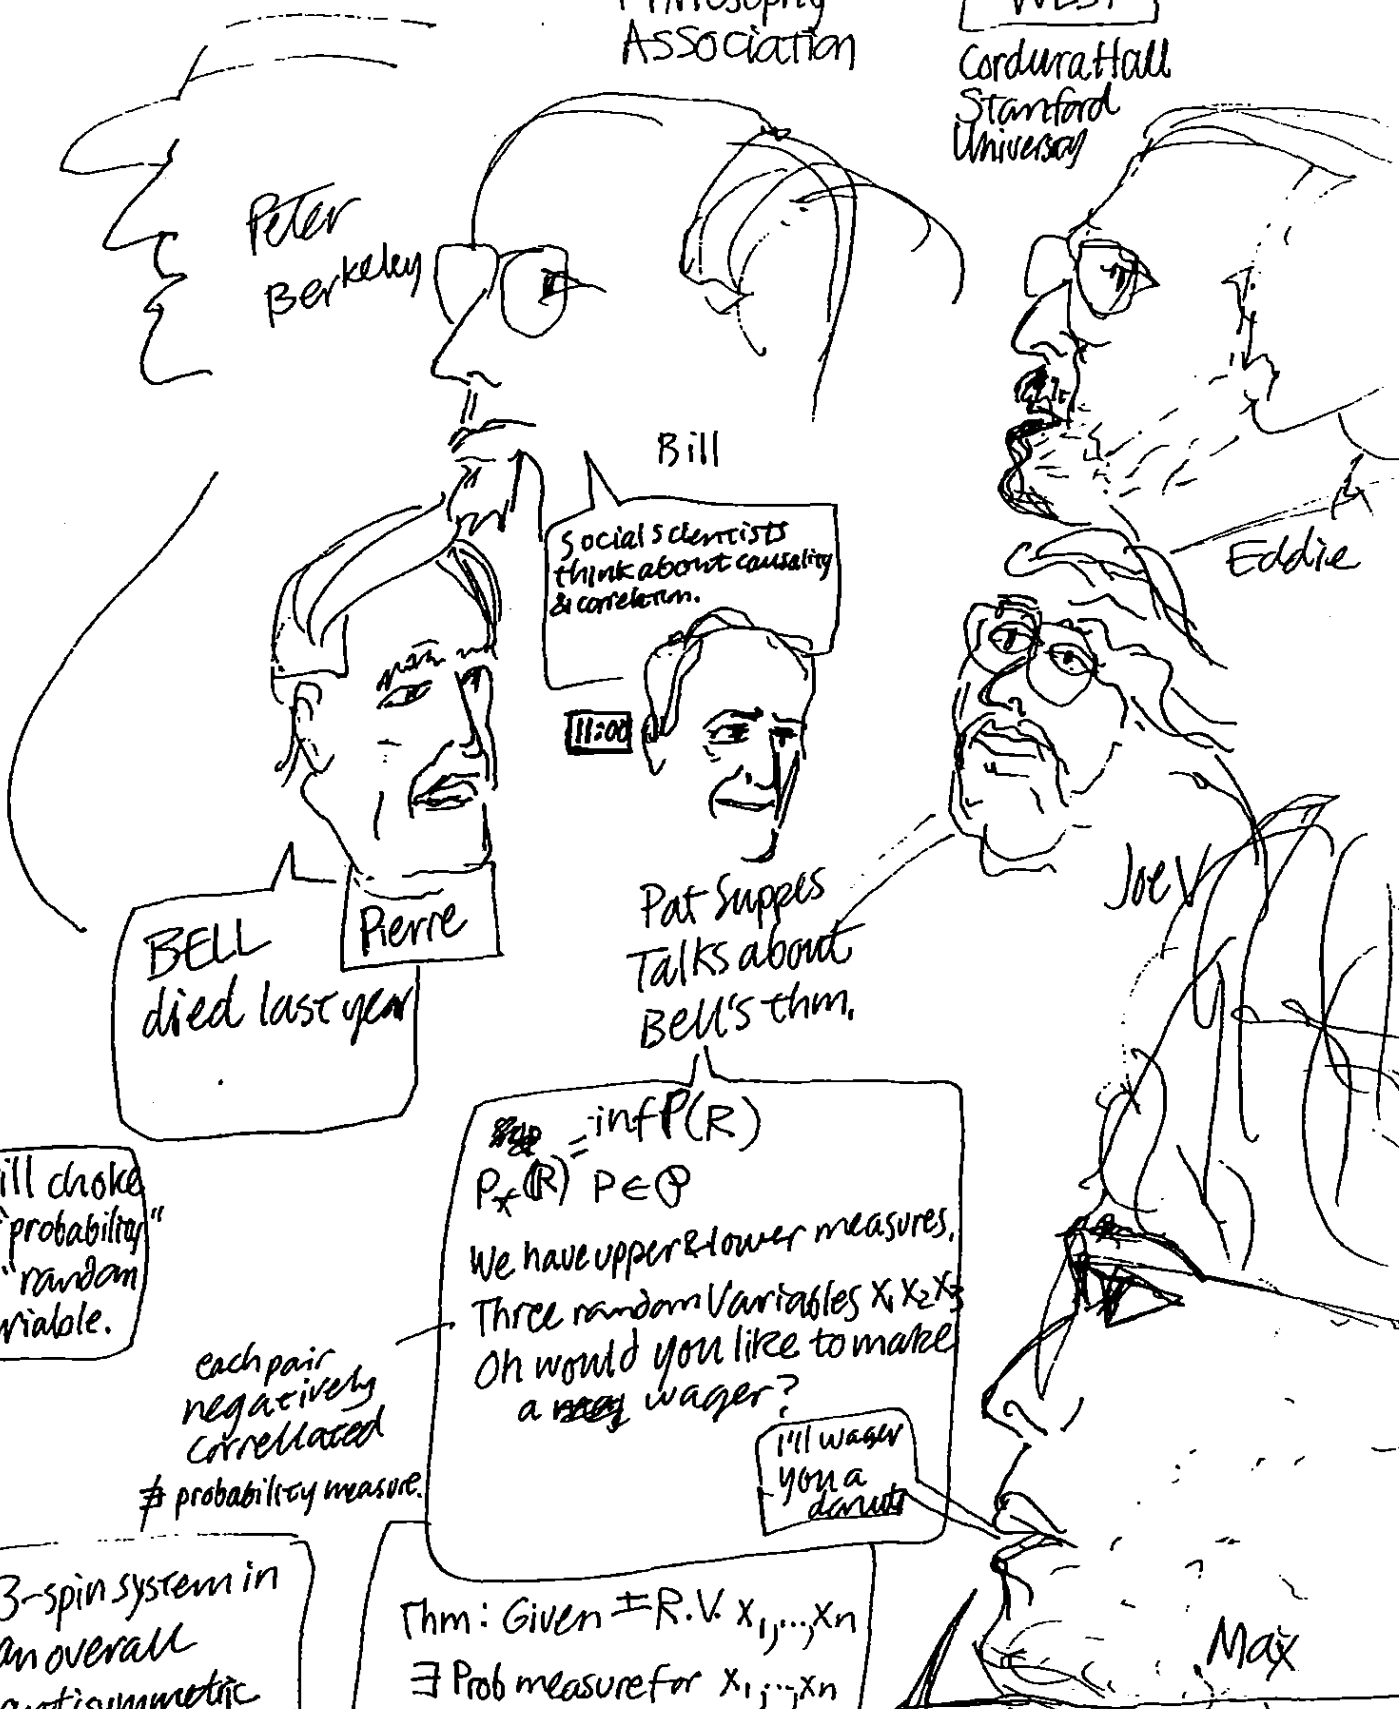 Philosophy
Association
WEST
Cordura Hall
Stanford
University
Peter
Berkeley
Bill
Social Scientists
think about causality
& correlation.
Eddie
11:00
Joe V
Pierre
BELL
died last year
Pat Suppes
Talks about
Bell's thm.
= inf P(R)
P*(R) P∈℗
We have upper & lower measures.
Three random Variables X1 X2 X3
Oh would you like to make
a wager?
I'll wager
you a
donut
ill choke
"probability"
"random
riable.
each pair
negatively
correllated
∄ probability measure.
3-spin system in
an overall
antisymmetric
Thm: Given ±R.V. X1,...,Xn
∃ Prob measure for X1,...,Xn
Max